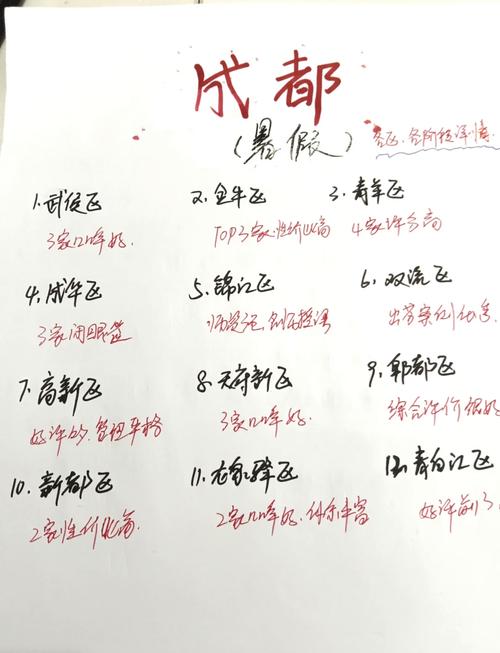 成都
(暑假)
各区、各阶段详情
1.武侯区 2.金牛区 3.青羊区
3家口碑好. TOP3家,性价比高 4家评分高
4.成华区 5.锦江区 6.双流区
3家闭眼签 师资强、
7.高新区 8.天府新区 9.郫都区
好评的,管理严格 3家口碑好. 综合评价很好
10.新都区 11.龙泉驿区 12.青白江区
2家性价比高. 2家口碑好、 丰富 好评前3